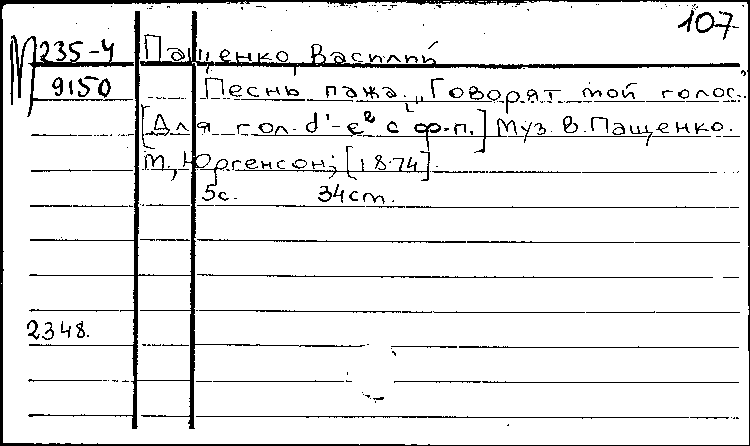 107
М 235-4 Пащенко, Василий
9150 Песнь пажа. „Говорят мой голос."
[Для гол. d'-e² с ф-п.] Муз. В. Пащенко.
М., Юргенсон; [1874].
5с. 34см.
2348.